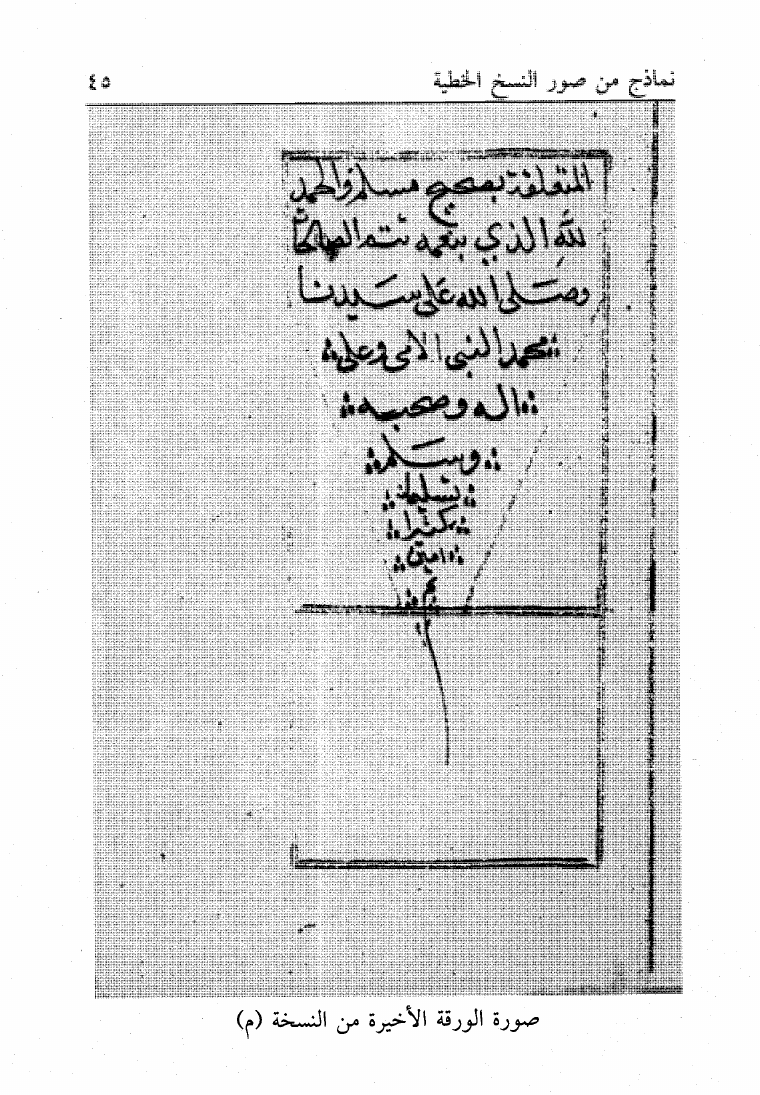 نماذج من صور النسخ الخطية ٤٥
المتعلقة بصحيح مسلم والحمد
لله الذي بنعمه تتم الصالحات
وصَلى الله عَلى سَيدنا
محمد النبى الامى وعلى
اله وصحبه
وسَلم
تسليما
كثيرا
امين
م
صورة الورقة الأخيرة من النسخة (م)